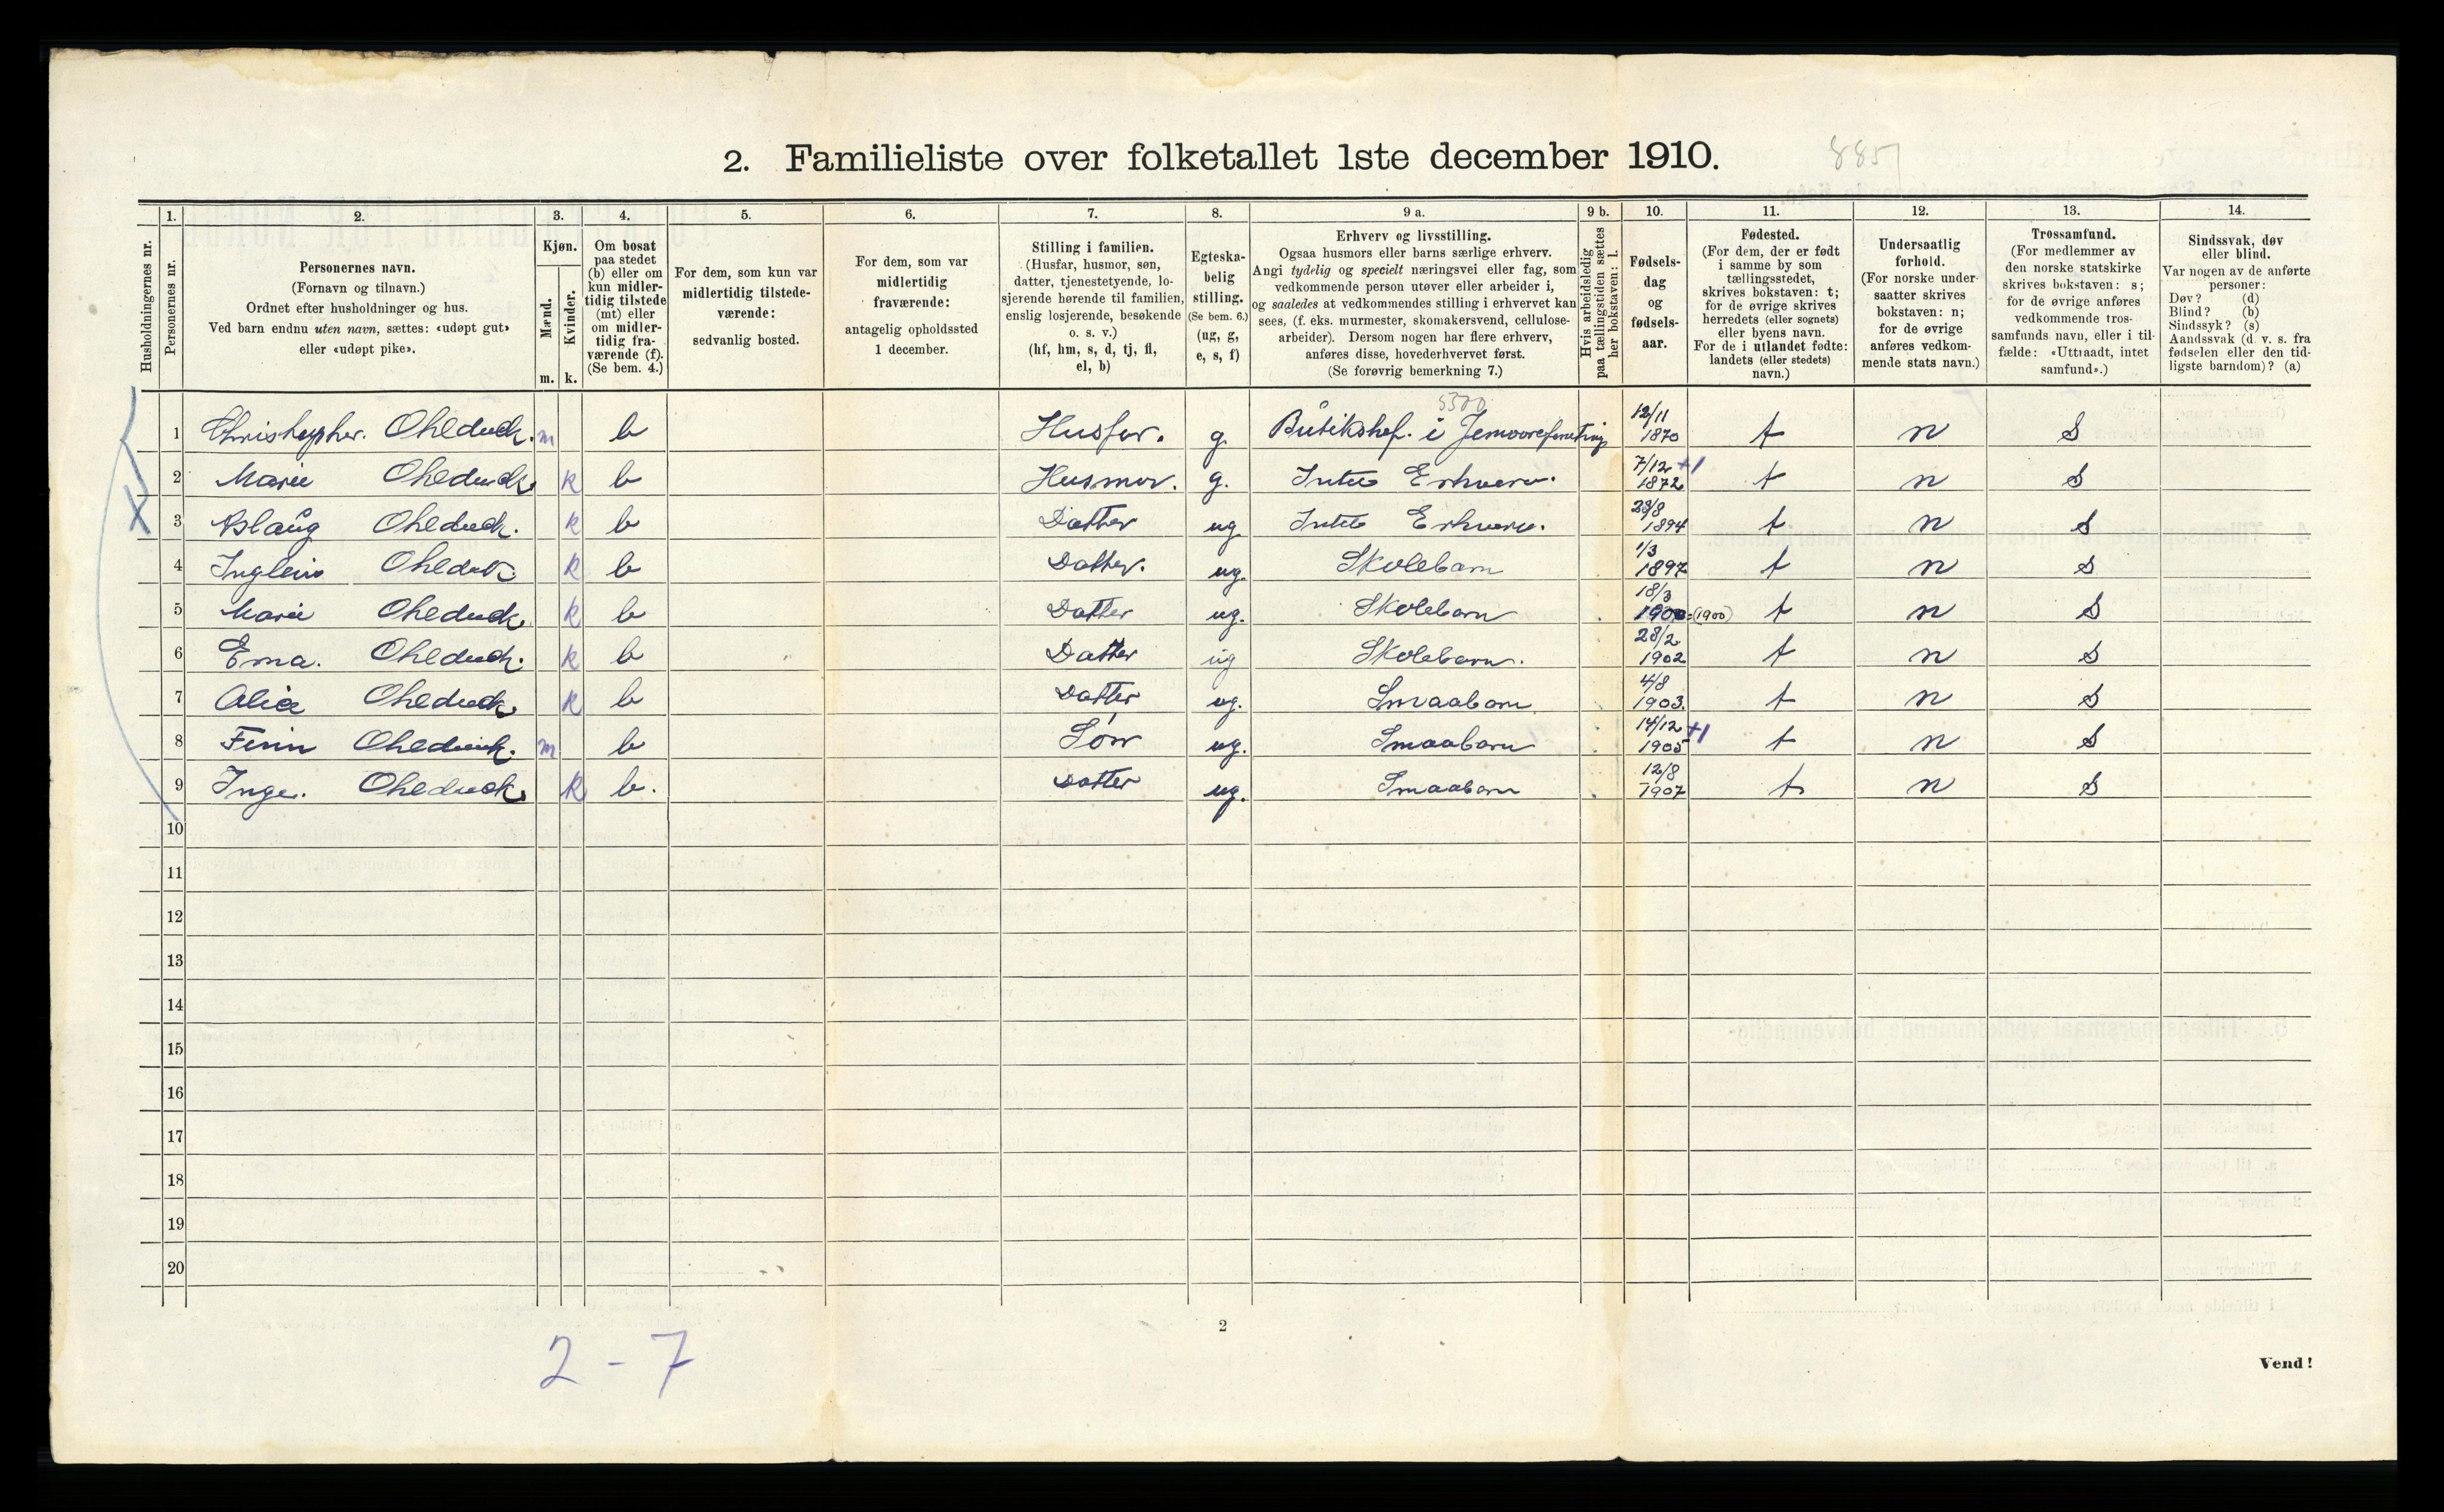 2. Familieliste over folketallet 1ste december 1910.
885
Husholdningernes nr.
1.
Personernes nr.
2.
Personernes navn.
(Fornavn og tilnavn.)
Ordnet efter husholdninger og hus.
Ved barn endnu uten navn, sættes: «udøpt gut»
eller «udøpt pike».
3.
Kjøn.
Mænd.
Kvinder.
m. k.
4.
Om bosat
paa stedet
(b) eller om
kun midler-
tidig tilstede
(mt) eller
om midler-
tidig fra-
værende (f).
(Se bem. 4.)
5.
For dem, som kun var
midlertidig tilstede-
værende:
sedvanlig bosted.
6.
For dem, som var
midlertidig
fraværende:
antagelig opholdssted
1 december.
7.
Stilling i familien.
(Husfar, husmor, søn,
datter, tjenestetyende, lo-
sjerende hørende til familien,
enslig losjerende, besøkende
o. s. v.)
(hf, hm, s, d, tj, fl,
el, b)
8.
Egteska-
belig
stilling.
(Se bem. 6.)
(ug, g,
e, s, f)
9 a.
Erhverv og livsstilling.
Ogsaa husmors eller barns særlige erhverv.
Angi tydelig og specielt næringsvei eller fag, som
vedkommende person utøver eller arbeider i,
og saaledes at vedkommendes stilling i erhvervet kan
sees, (f. eks. murmester, skomakersvend, cellulose-
arbeider). Dersom nogen har flere erhverv,
anføres disse, hovederhvervet først.
(Se forøvrig bemerkning 7.)
9 b.
Hvis arbeidsledig
paa tællingstiden sættes
her bokstaven: l.
10.
Fødsels-
dag
og
fødsels-
aar.
11.
Fødested.
(For dem, der er født
i samme by som
tællingsstedet,
skrives bokstaven: t;
for de øvrige skrives
herredets (eller sognets)
eller byens navn.
For de i utlandet fødte:
landets (eller stedets)
navn.)
12.
Undersaatlig
forhold.
(For norske under-
saatter skrives
bokstaven: n;
for de øvrige
anføres vedkom-
mende stats navn.)
13.
Trossamfund.
(For medlemmer av
den norske statskirke
skrives bokstaven: s;
for de øvrige anføres
vedkommende tros-
samfunds navn, eller i til-
fælde: «Uttraadt, intet
samfund».)
14.
Sindssvak, døv
eller blind.
Var nogen av de anførte
personer:
Døv? (d)
Blind? (b)
Sindssyk? (s)
Aandssvak (d. v. s. fra
fødselen eller den tid-
ligste barndom)? (a)
5300
1 m b Husfar. g. i 12/11 1870 t n S
2 Marie k b Husmor. g. Erhverv. 7/12 +1 1872 t n S
3 Aslaug k b Datter ug 1894 t n S
4 k b Datter. ug. Skolebarn 1/3 1897 t n S
5 Marie k b Datter ug. Skolebarn 18/3 1900 =(1900) t n S
6 Erna. k b Datter ug Skolebarn. 28/2 1902 t n S
7 Alice k b Datter ug. Smaabarn 4/8 1903. t n S
8 Finn m b Søn ug. Smaabarn 14/12 +1 1905 t n S
9 Inge. k b. Datter ug. Smaabarn 12/8 1907 t n S
10
11
12
13
14
15
16
17
18
19
20
2
2-7
Vend!